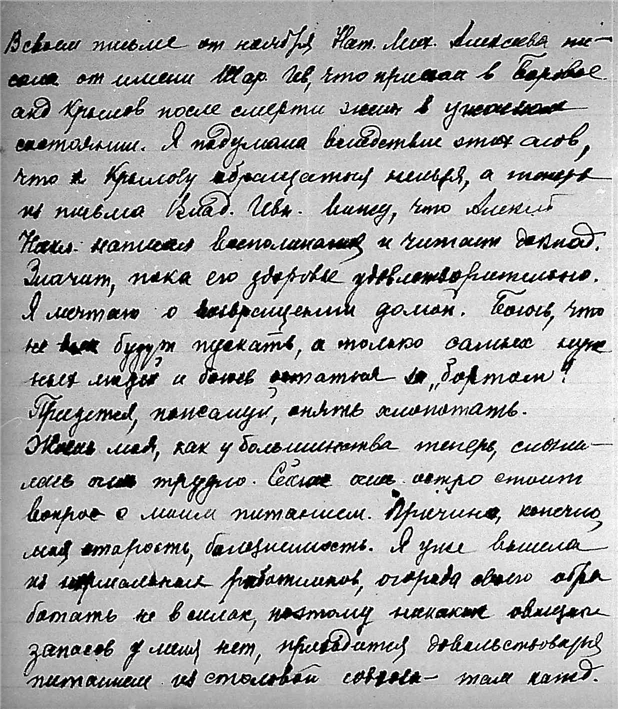 В своем письме от ноября Нат. Мих. Алексеева пи-
сала от имени Шар. Ив, что приехал в Боровое
акад Крылов после смерти жены в ужасном
состоянии. Я подумала вследствие этих слов,
что к Крылову обращаться нельзя, а теперь
из письма Влад. Ивн. вижу, что Алексей
Никл. написал воспоминания и читает доклад.
Значит, пока его здоровье удовлетворительно.
Я мечтаю о возвращении домой. Боюсь, что
не всех будут пускать, а только самых нуж
ных людей и боюсь остаться за „бортом".
Придется, пожалуй, опять хлопотать.
Жизнь моя, как у большинства теперь, сложи-
лась трудно. Сейчас остро стоит
вопрос о моем питании. Причина, конечно,
моя старость, болезненность. Я уже вышла
из нормальных работников, огорода своего обра
ботать не в силах, поэтому никаких овощных
запасов у меня нет, приходится довольствоваться
питанием из столовой совхоза — там кажд.